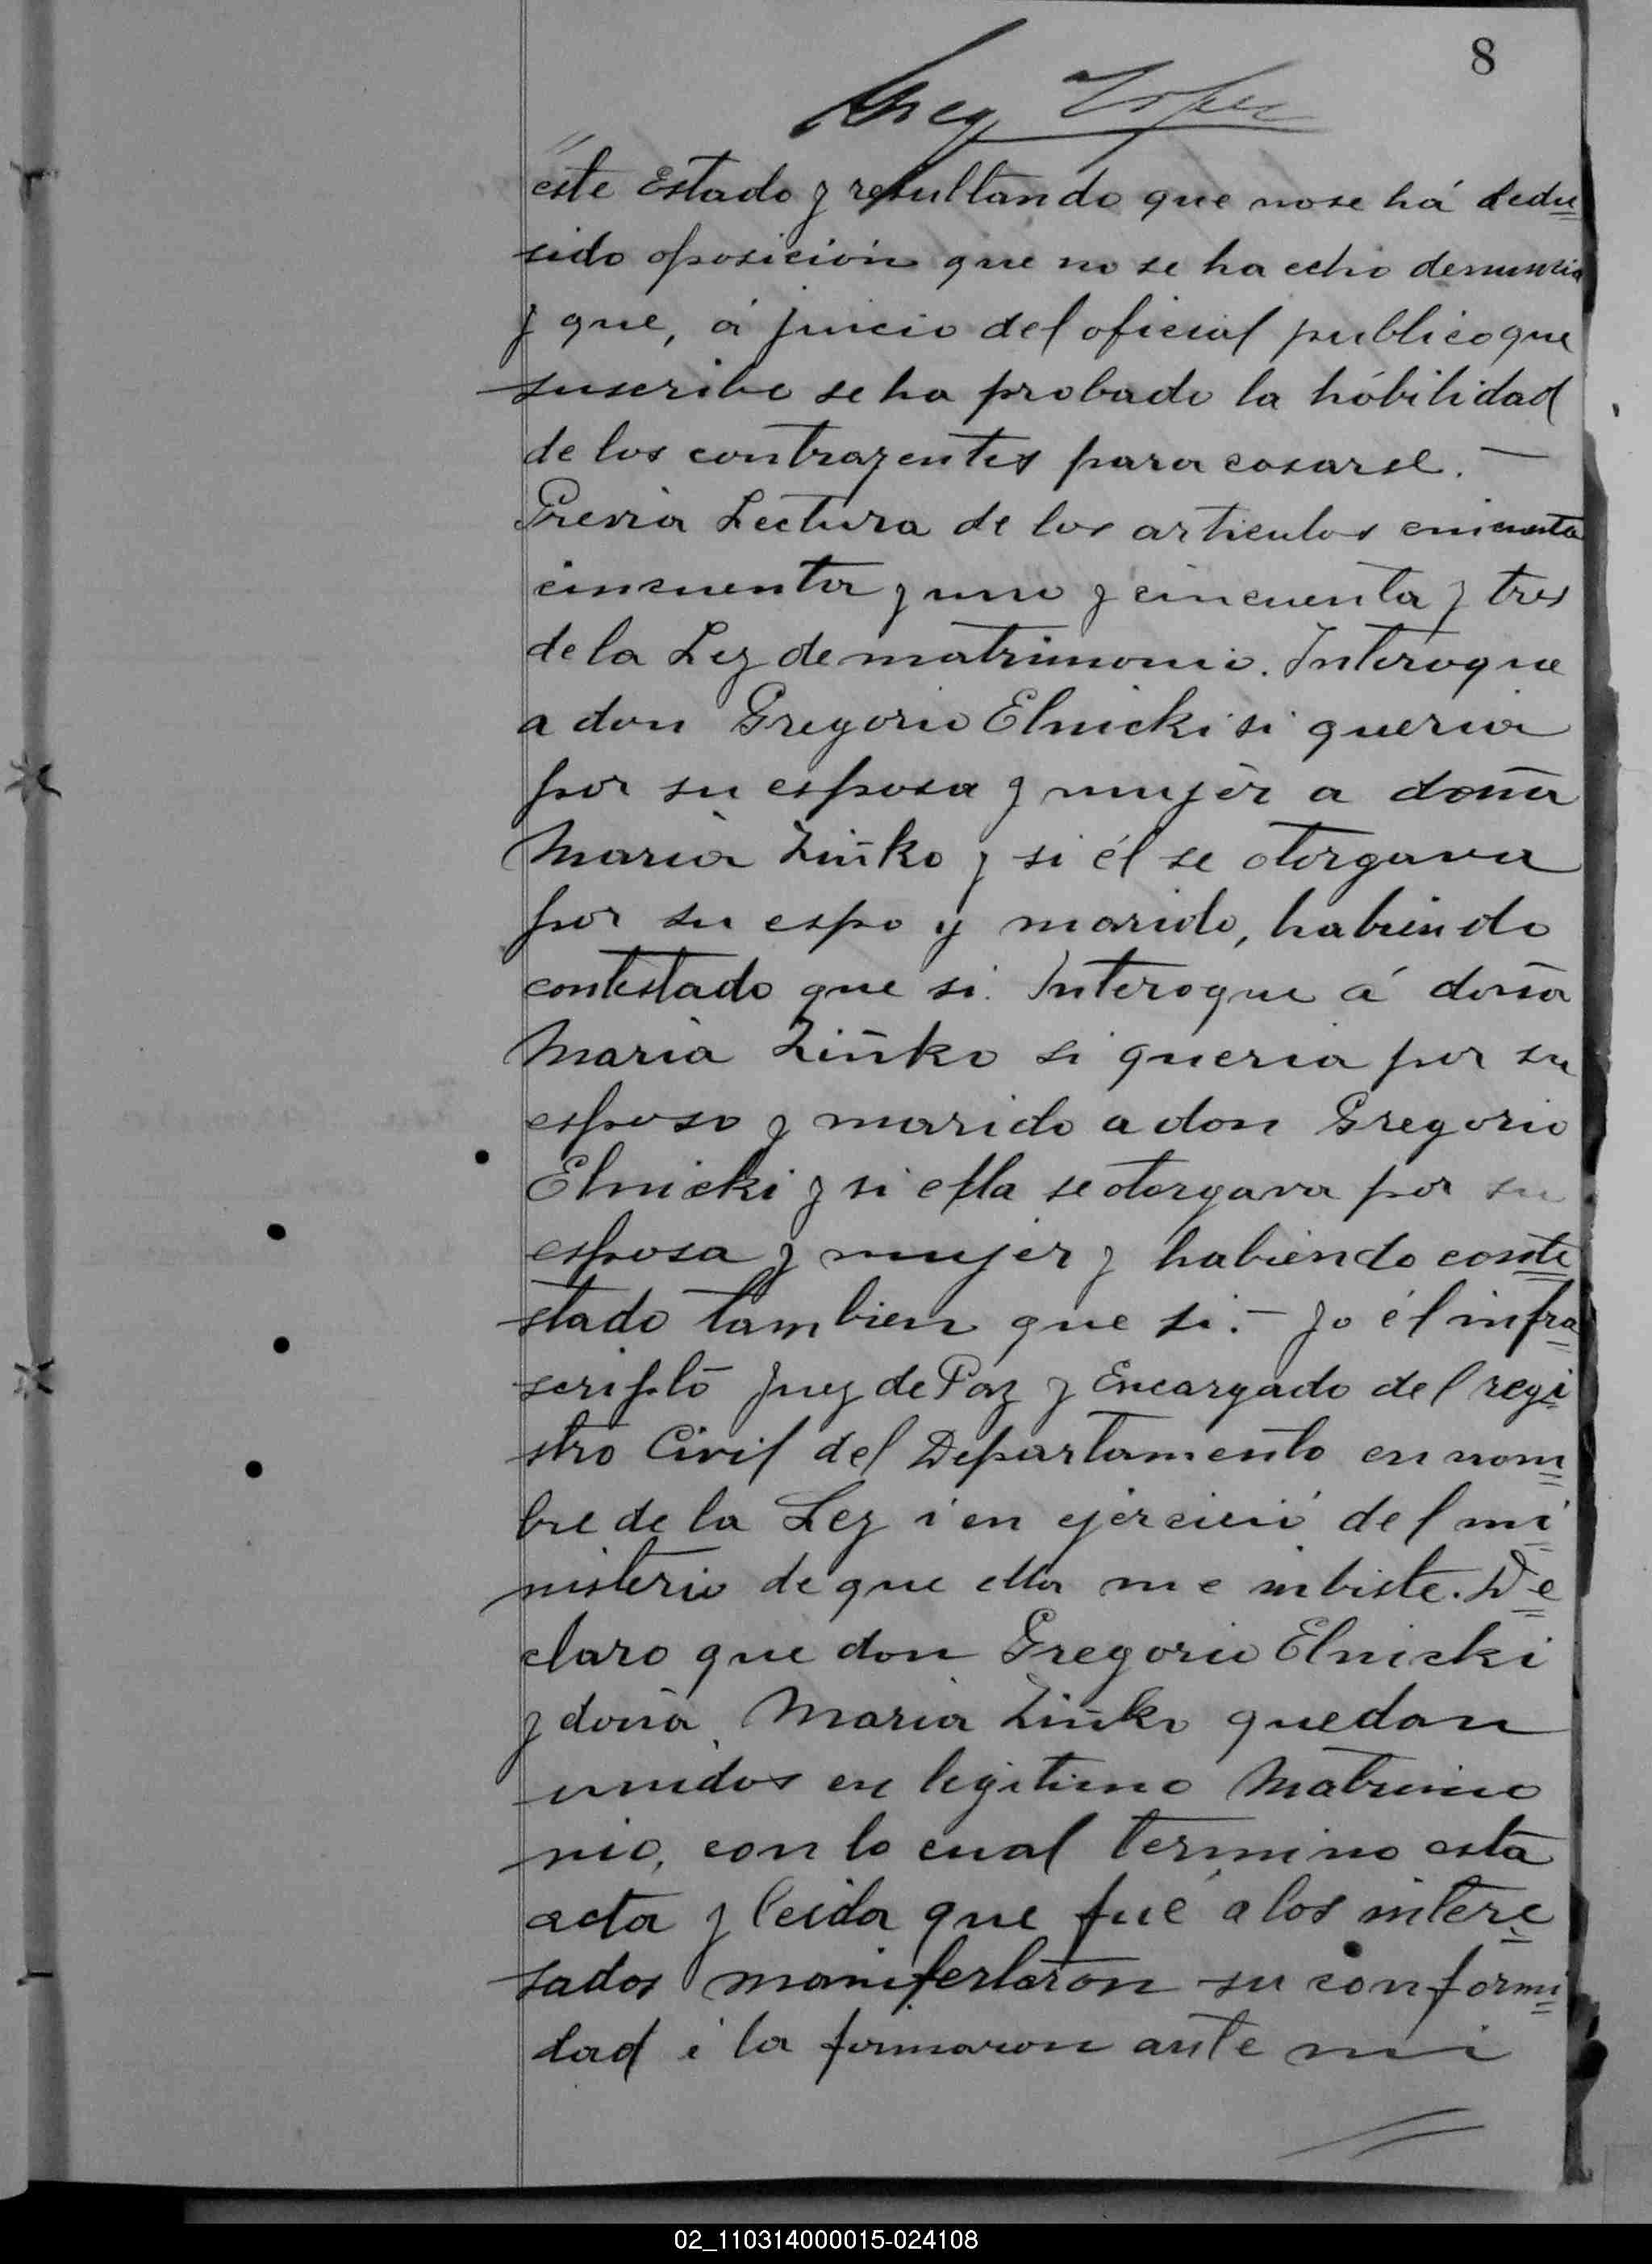 8
este Estado y resultando que no se há dedu
sido oposición que no se ha echo denuncia
y que, á juicio del oficial publico que
suscribe se ha probado la hábilidad
de los contrayentes para casarse. —
Previa Lectura de los articulos cincuenta
cincuenta y uno y cincuenta y tres
de la Ley de matrimonio. Interogue
a don Gregorio Elnicki si queria
por su esposa y mujér a doña
Maria Ziñko y si él se otorgava
por su espo y marido, habiendo
contestado que si. Interogue á doña
Maria Ziñko si queria por su
esposo y marido a don Gregorio
Elnicki y si ella se otorgava por su
esposa y mujer y habiendo conte
stado tambien que si. — Jo él infra
scripto Juez de Paz y Encargado del regi
stro Civil del Departamento en nom
bre de la Ley i en ejercicio del mi
nisterio de que ella me inbiste. De
claro que don Gregorio Elnicki
y doña Maria Ziñko quedan
unidos en legitimo Matrimo
nio, con lo cual termino esta
acta y leida que fué a los intere
sados manifestaron su conformi
dad i la firmaron ante mi
02_110314000015-024108